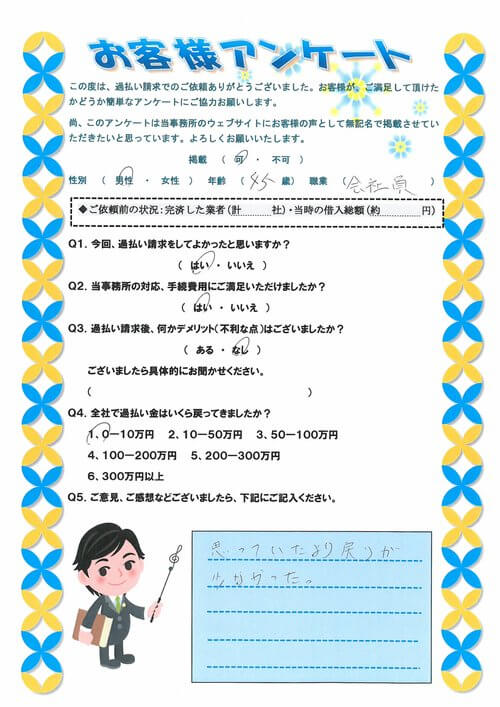 お客様アンケート
この度は、過払い請求でのご依頼ありがとうございました。お客様が、ご満足して頂けた
かどうか簡単なアンケートにご協力お願いします。
尚、このアンケートは当事務所のウェブサイトにお客様の声として無記名で掲載させてい
ただきたいと思っています。よろしくお願いいたします。
掲載 ( 可 ・ 不可 )
性別 ( 男性 ・ 女性 ) 年齢 ( 45 歳) 職業 ( 会社員 )
◆ご依頼前の状況:完済した業者(計 社)・当時の借入総額(約 円)
Q1. 今回、過払い請求をしてよかったと思いますか?
( はい ・ いいえ )
Q2. 当事務所の対応、手続費用にご満足いただけましたか?
( はい ・ いいえ )
Q3. 過払い請求後、何かデメリット(不利な点)はございましたか?
( ある ・ なし )
ございましたら具体的にお聞かせください。
( )
Q4. 全社で過払い金はいくら戻ってきましたか?
1、0―10万円 2、10―50万円 3、50―100万円
4、100―200万円 5、200―300万円
6、300万円以上
Q5. ご意見、ご感想などございましたら、下記にご記入ください。
思っていたより戻りが
少なかった。